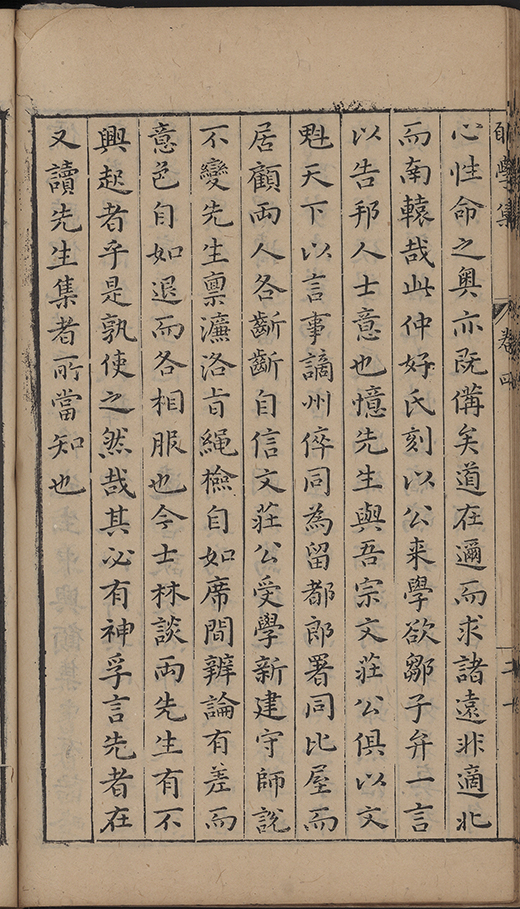 學集 卷四
心性命之奧亦既備矣道在邇而求諸遠非適北
而南轅哉此仲好氏刻以公来學欲鄒子弁一言
以告邦人士意也憶先生與吾宗文莊公俱以文
魁天下以言事謫州倅同為留都郎署同比屋而
居顧兩人各齗齗自信文莊公受學新建守師說
不變先生稟濂洛旨繩檢自如席間辨論有差而
意色自如退而各相服也今士林談兩先生有不
興起者乎是孰使之然哉其必有神孚言先者在
又讀先生集者所當知也